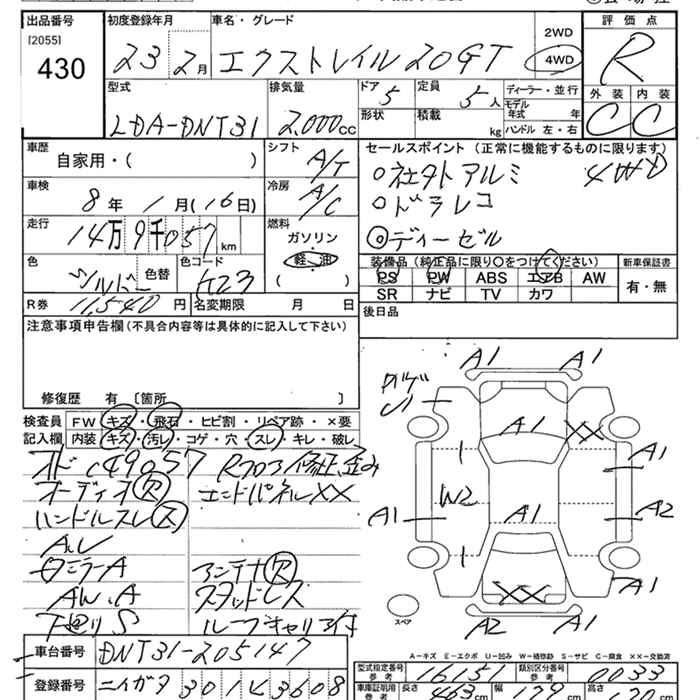 出品番号
[2055]
430
初度登録年月
23 2月
車名・グレード
エクストレイル 20GT
2WD
4WD
評価点
R
外装 内装
C C
型式
LDA-DNT31
排気量
2,000cc
ドア
5
形状
定員
5人
積載
kg
ディーラー・並行
モデル年式 年
ハンドル 左・右
車歴
自家用・( )
シフト
A/T
車検
8年 1月(16日)
冷房
A/C
走行
14万9千057km
燃料
ガソリン
軽油
( )
色
シルバー
色替
色コード
K23
R券 11,540円
名変期限 月 日
セールスポイント(正常に機能するものに限ります)
○社外アルミ 4WD
○ドラレコ
◎ディーゼル
装備品(純正品に限り○をつけてください)
PS PW ABS エアB AW
SR ナビ TV カワ
新車保証書
有・無
後日品
注意事項申告欄(不具合内容等は具体的に記入して下さい)
修復歴 有〔箇所 〕
検査員記入欄
FW キズ・飛石・ヒビ割・リペア跡・×要
内装 キズ・汚レ・コゲ・穴・スレ・キレ・破レ
オド 149057 Rフロア修正、歪み
オーディオ欠 エンドパネルXX
ハンドルスレス
A.レ
タミラーA アンテナ欠
AW.A スタッドレス
下廻りS ルーフキャリア付
A1 A1
A1 XX
A1
W2
A1
A1
A2
XX
A1
A2 A1
スペア
A−キズ E−エクボ U−凹み W−補修跡 S−サビ C−腐食 XX−交換済
車台番号
DNT31-205147
登録番号
ニイガタ 301 ヒ 3608
型式指定番号
参考
16151
類別区分番号
参考
0033
車庫証明用
参考
長さ 463cm
幅 179cm
高さ
cm